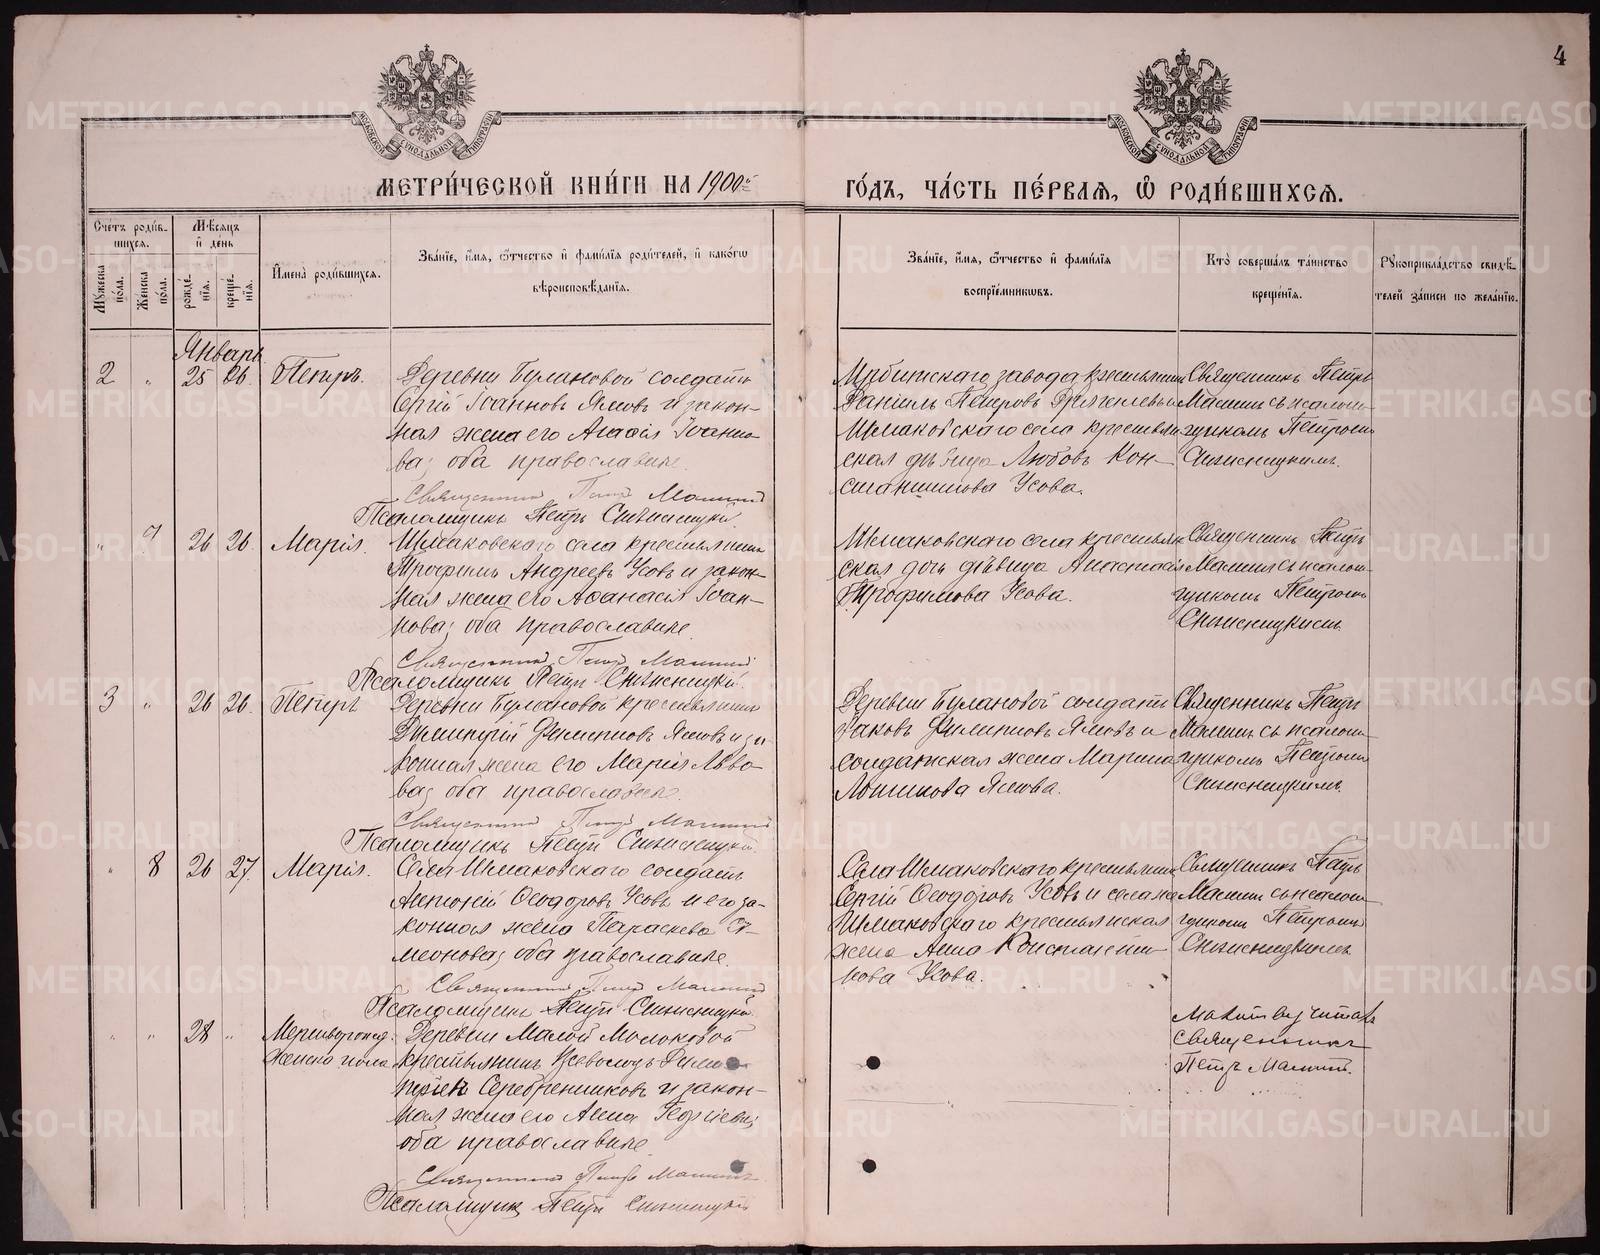 4
МОСКОВСКОЙ СѴНОДАЛЬНОЙ ТИПОГРАФІИ
МОСКОВСКОЙ СѴНОДАЛЬНОЙ ТИПОГРАФІИ
МЕТРИ́ЧЕСКОЙ КНИ́ГИ НА 1900й ГО́ДЪ, ЧА́СТЬ ПЕ́РВАЯ, Ѡ҆ РОДИ́ВШИХСЯ.
Сче́тъ роди́в-
шихся.
Мꙋ́жеска по́ла.
Же́нска по́ла.
Мѣ́сяцъ
и҆ де́нь
рожде́-
нїя.
креще́-
нїя.
И҆мена̀ роди́вшихся.
Зва́нїе, и҆́мя, ѻ҆́тчество и҆ фами́лїя роди́телей, и҆ како́гѡ
вѣроисповѣ́данїя.
Зва́нїе, и҆́мя, ѻ҆́тчество и҆ фами́лїя
воспрїе́мникѡвъ.
Кто̀ соверша́лъ та́инство
креще́нїя.
Рꙋкоприкла́дство свидѣ́-
телей за́писи по жела́нїю.
Январь
2 " 25 26. Петръ.
Деревни Булановой солдатъ
Сергій Іоанновъ Ямовъ и закон-
ная жена его Агафія Іоанно-
ва; оба православные.
Священникъ Петръ Маминъ
Псаломщикъ Петръ Снѣжницкій.
завода крестьянинъ
Даніилъ Петровъ
Шмаковскаго села крестьян-
ская дѣвица Любовь Кон-
стантинова Усова.
Священникъ Петръ
Маминъ съ псалом-
щикомъ Петромъ
Снѣжницкимъ.
" 7 26 26. Марія.
Шмаковскаго села крестьянинъ
Трофимъ Андреевъ Усовъ и закон-
ная жена его Афанасія Іоан-
нова; оба православные.
Священникъ Петръ Маминъ
Псаломщикъ Петръ Снѣжницкій.
Шмаковскаго села крестьян-
ская дочь дѣвица Анастасія
Трофимова Усова.
Священникъ Петръ
Маминъ съ псалом-
щикомъ Петромъ
Снѣжницкимъ.
3 " 26 26. Петръ
Деревни Булановой крестьянинъ
Димитрій Филипповъ Ямовъ и за-
конная жена его Марія Льво-
ва; оба православные.
Священникъ Петръ Маминъ
Псаломщикъ Петръ Снѣжницкій.
Деревни Булановой солдатъ
Іаковъ Филипповъ Ямовъ и
солдатская жена Марина
Ямова.
Священникъ Петръ
Маминъ съ псалом-
щикомъ Петромъ
Снѣжницкимъ.
" 8 26 27. Марія.
Села Шмаковскаго солдатъ
Антоній Ѳеодоровъ Усовъ и его за-
конная жена Параскева Си-
меонова; оба православные.
Священникъ Петръ Маминъ
Псаломщикъ Петръ Снѣжницкій.
Села Шмаковскаго крестьянинъ
Сергій Ѳеодоровъ Усовъ и села же
Шмаковскаго крестьянская
жена Анна Константи-
нова Усова.
Священникъ Петръ
Маминъ съ псалом-
щикомъ Петромъ
Снѣжницкимъ.
" " 28 " Мертворожд.
женска пола
Деревни Малой Молоковой
крестьянинъ Всеволодъ
Серебренниковъ и закон-
ная жена его Анна Георгіева;
оба православные.
Священникъ Петръ Маминъ
Псаломщикъ Петръ Снѣжницкій
Молитву читалъ
священникъ
Петръ Маминъ.
METRIKI.GASO-URAL.RU